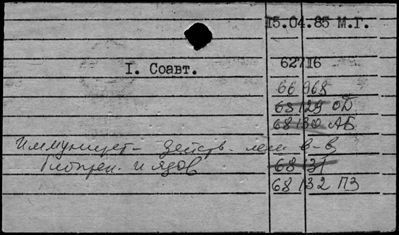 15.04.85 М.Г.
I. Соавт. 62716
66 968
68129 ОД
68130 АБ
Иммунитет- действ. лек в-в
и ядов 68131
68132 ПЗ